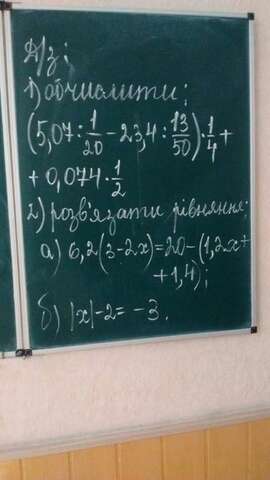 Д/з:
1) обчислити:
(5,07 : 1/20 - 23,4 : 13/50) · 1/4 +
+ 0,074 · 1/2
2) розв'язати рівняння:
а) 6,2(3-2x)=20-(1,2x+
+1,4);
б) |x|-2= -3.